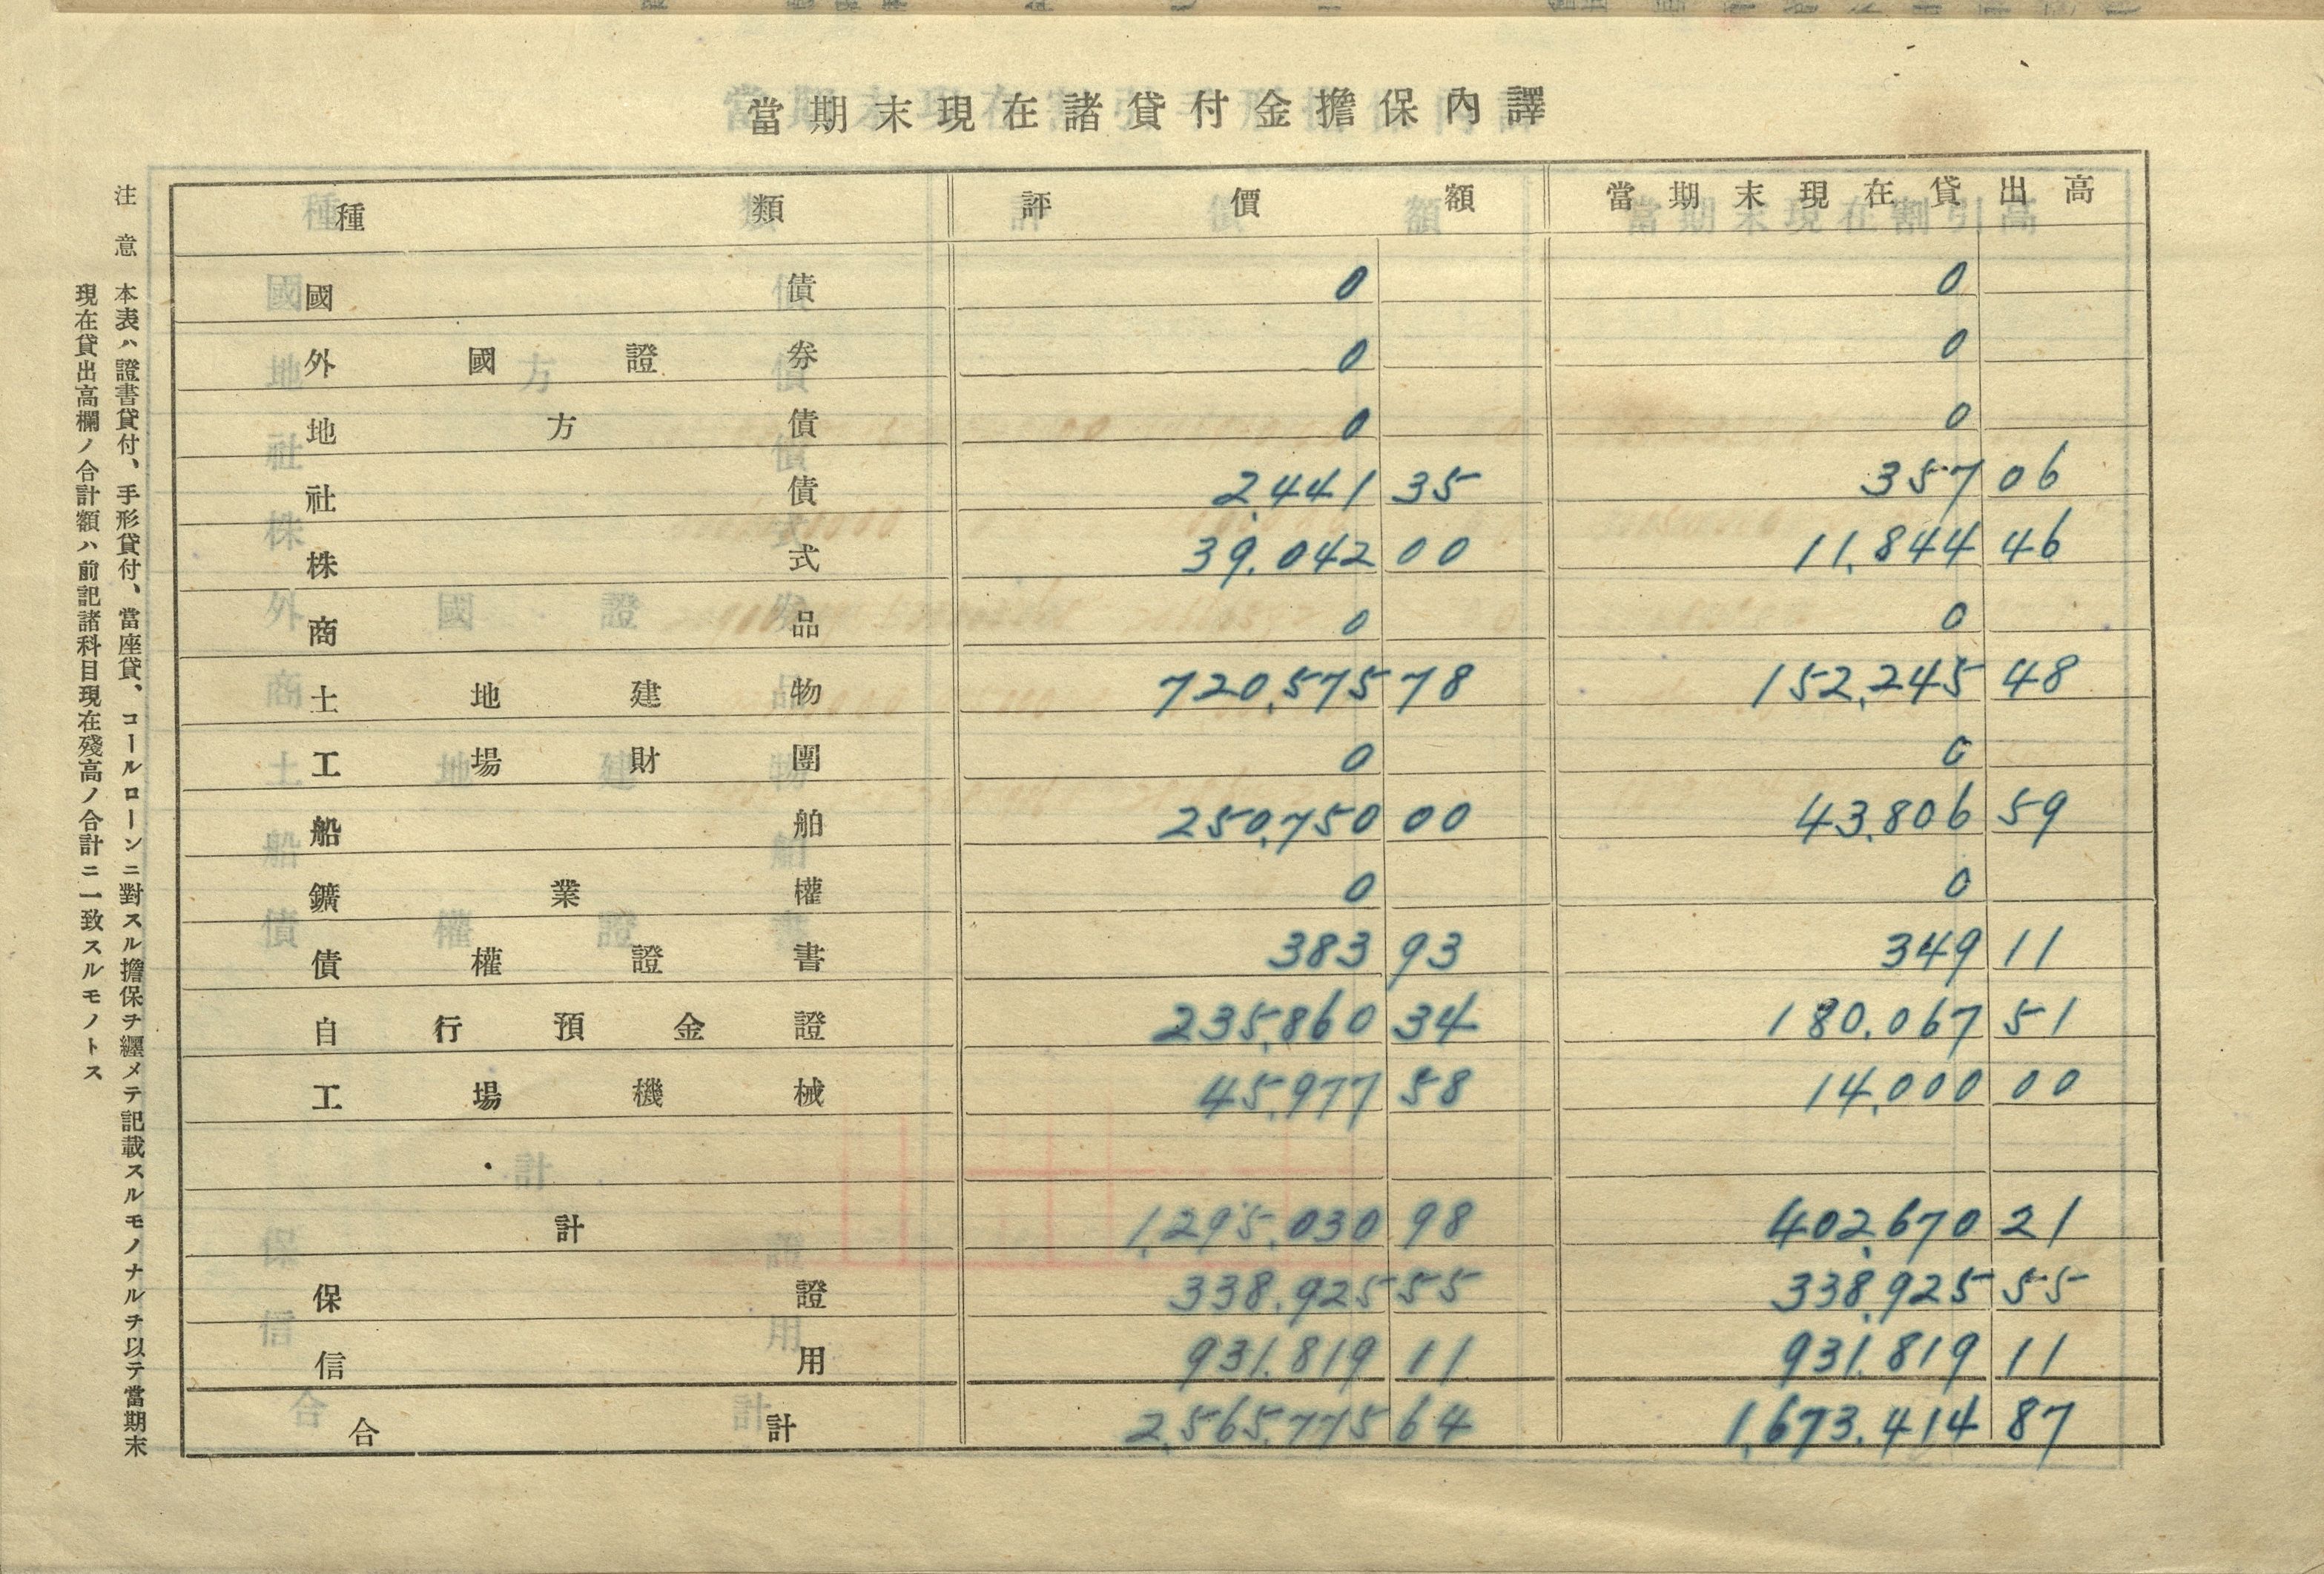 當期末現在諸貸付金擔保內譯
種類 評價額 當期末現在貸出高
國債 0 0
外國證券 0 0
地方債 0 0
社債 2,441 35 357 06
株式 39,042 00 11,844 46
商品 0 0
土地建物 720,575 78 152,245 48
工場財團 0 0
船舶 250,750 00 43,806 59
鑛業權 0 0
債權證書 383 93 349 11
自行預金證 235,860 34 180,067 51
工場機械 45,977 58 14,000 00
計 1,295,030 98 402,670 21
保證 338,925 55 338,925 55
信用 931,819 11 931,819 11
合計 2,565,775 64 1,673,414 87
注意 本表ハ證書貸付、手形貸付、當座貸、コールローンニ對スル擔保チ纒メテ記載スルモノナルチ以テ當期末
現在貸出高欄ノ合計額ハ前記諸科目現在殘高ノ合計ニ一致スルモノトス